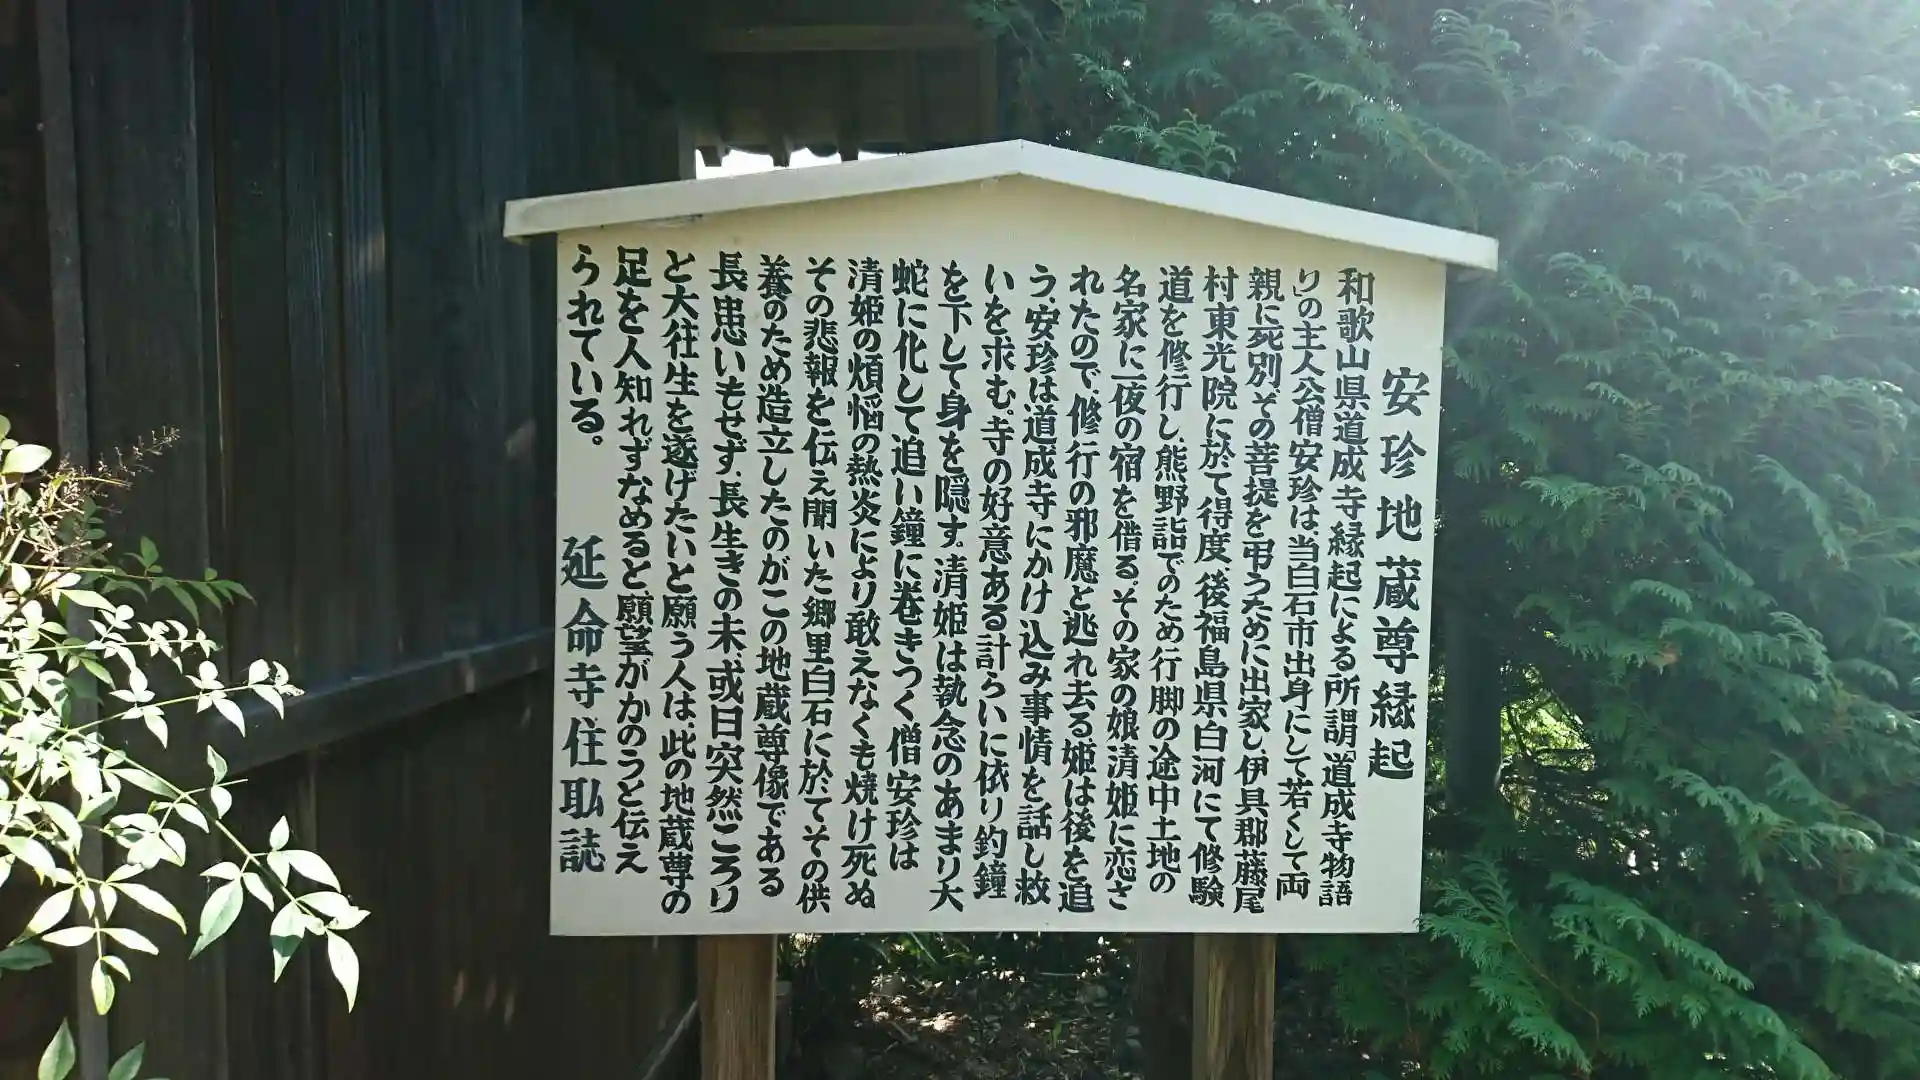 安珍地蔵尊縁起
和歌山県道成寺縁起による所謂「道成寺物語
り」の主人公僧安珍は、当白石市出身にして若くして両
親に死別、その菩提を弔うために出家し、伊具郡藤尾
村東光院に於て得度、後福島県白河にて修験
道を修行し、熊野詣でのため行脚の途中土地の
名家に一夜の宿を借る。その家の娘清姫に恋さ
れたので、修行の邪魔と逃れ去る姫は後を追
う、安珍は道成寺にかけ込み事情を話し救
いを求む。寺の好意ある計らいに依り釣鐘
を下して身を隠す。清姫は執念のあまり大
蛇に化して追い鐘に巻きつく僧安珍は
清姫の煩悩の熱炎により敢えなくも焼け死ぬ
その悲報を伝え聞いた郷里白石に於てその供
養のため造立したのがこの地蔵尊像である
長患いもせず、長生きの末或日突然ころり
と大往生を遂げたいと願う人は、此の地蔵尊の
足を人知れずなめると、願望がかのうと伝え
られている。
延命寺住職誌